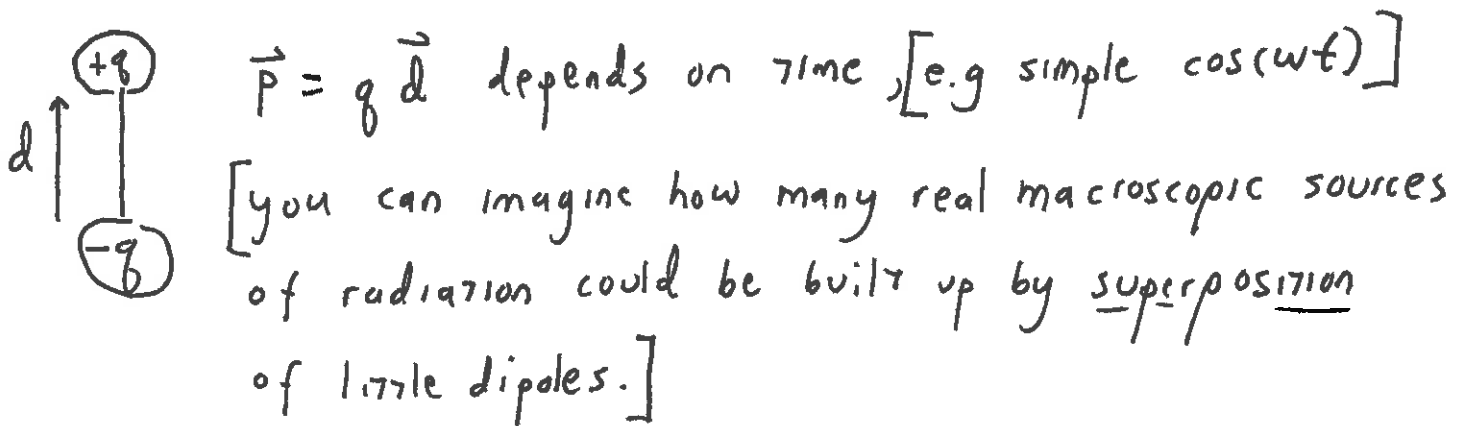 +q
d
-q
p⃗ = q d⃗ depends on time, [e.g simple cos(ωt)]
[you can imagine how many real macroscopic sources
of radiation could be built up by superposition
of little dipoles.]